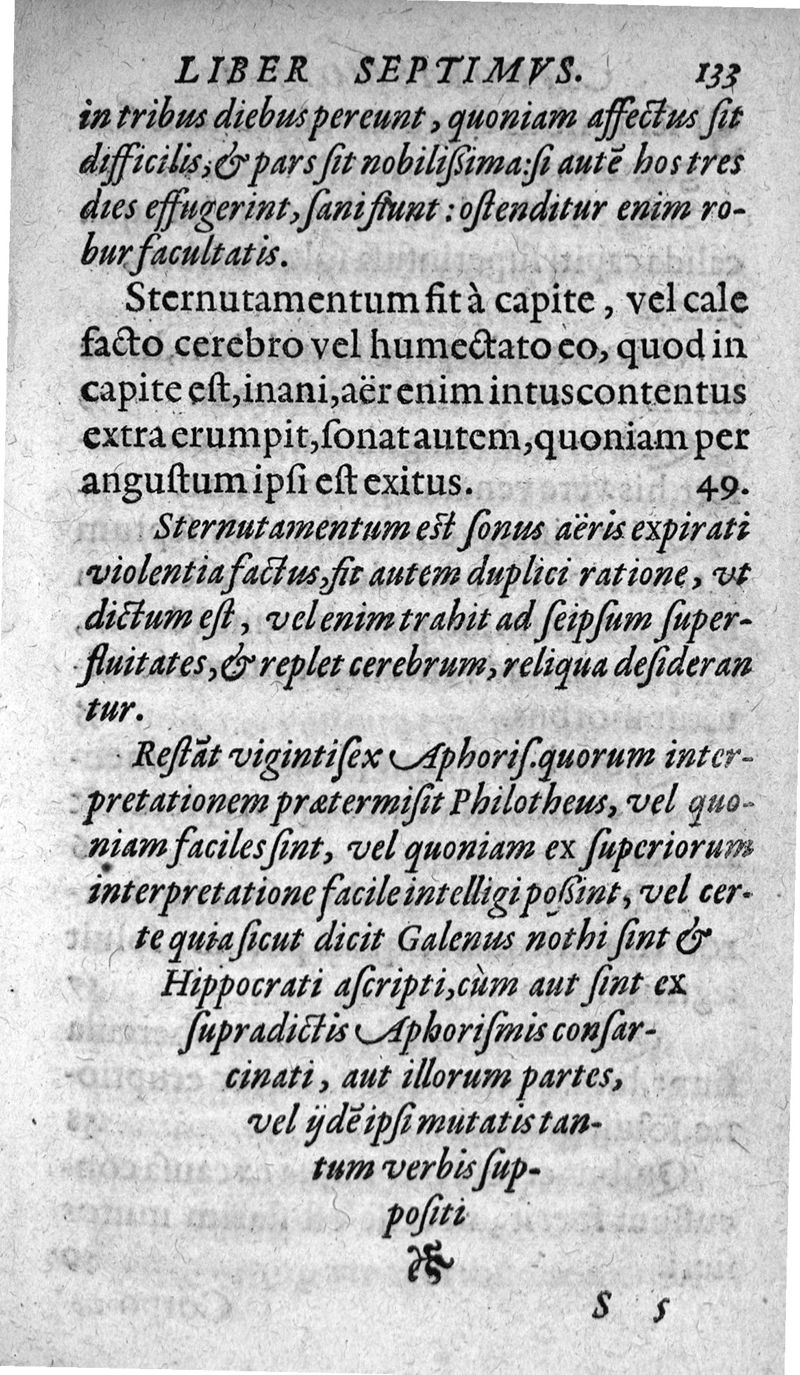 LIBER SEPTIMVS. 133
in tribus diebus pereunt, quoniam affectus ſit
difficilis, & pars ſit nobilißima: ſi autē hos tres
dies effugerint, ſani fiunt: oſtenditur enim ro-
bur facultatis.
Sternutamentum fit à capite, vel cale
facto cerebro vel humectato eo, quod in
capite eſt, inani, aër enim intus contentus
extra erumpit, ſonat autem, quoniam per
anguſtum ipſi eſt exitus. 49.
Sternutamentum eſt ſonus aëris expirati
violentia factus, fit autem duplici ratione, vt
dictum eſt, vel enim trahit ad ſeipſum ſuper-
fluitates, & replet cerebrum, reliqua deſideran
tur.
Reſtāt viginti ſex Aphoriſ. quorum inter-
pretationem prætermiſit Philotheus, vel quo-
niam faciles ſint, vel quoniam ex ſuperiorum
interpretatione facile intelligi poßint, vel cer-
te quia ſicut dicit Galenus nothi ſint &
Hippocrati aſcripti, cùm aut ſint ex
ſupradictis Aphoriſmis conſar-
cinati, aut illorum partes,
vel ijdē ipſi mutatis tan-
tum verbis ſup-
poſiti
S 5